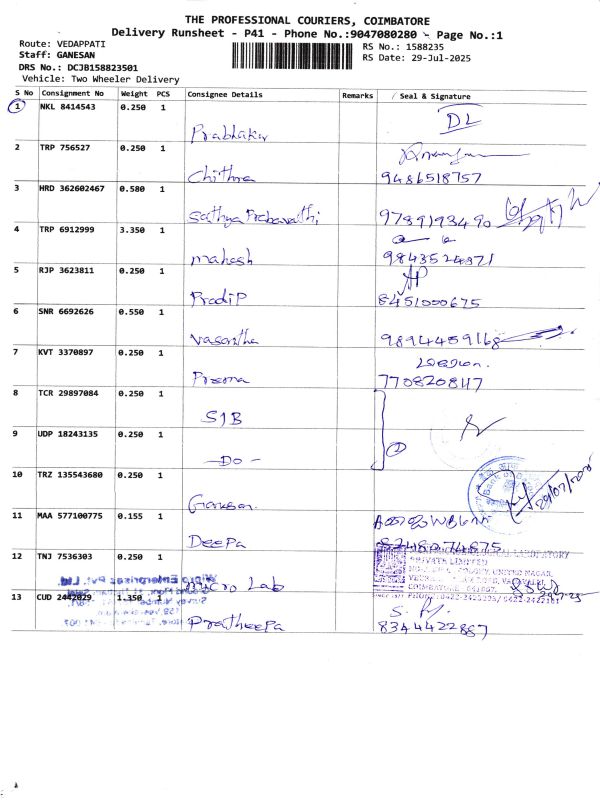 THE PROFESSIONAL COURIERS, COIMBATORE
Delivery Runsheet - P41 - Phone No.:9047080280 - Page No.:1
Route: VEDAPPATI
RS No.: 1588235
Staff: GANESAN
RS Date: 29-Jul-2025
DRS No.: DCJB158823501
Vehicle: Two Wheeler Delivery
S No Consignment No Weight PCS Consignee Details Remarks Seal & Signature
1 NKL 8414543 0.250 1
DL
Prabhakar
2 TRP 756527 0.250 1
Chithra 9486518757
3 HRD 362602467 0.580 1
Sathya Prabavathi 9789193490
4 TRP 6912999 3.350 1
mahesh 9843524371
5 RJP 3623811 0.250 1
Pradip 8451000675
6 SNR 6692626 0.550 1
Vasantha 9894459168
7 KVT 3370897 0.250 1
Prema 7708208117
8 TCR 29897084 0.250 1
SIB
9 UDP 18243135 0.250 1
-Do-
10 TRZ 135543680 0.250 1
Ganesan 29/07/2025
11 MAA 577100775 0.155 1
Deepa 8248074675
12 TNJ 7536303 0.250 1
micro Lab
LABORATORY
PRIVATE LIMITED
13 CUD 2442029 1.350 1
Pratheepa 8344422887